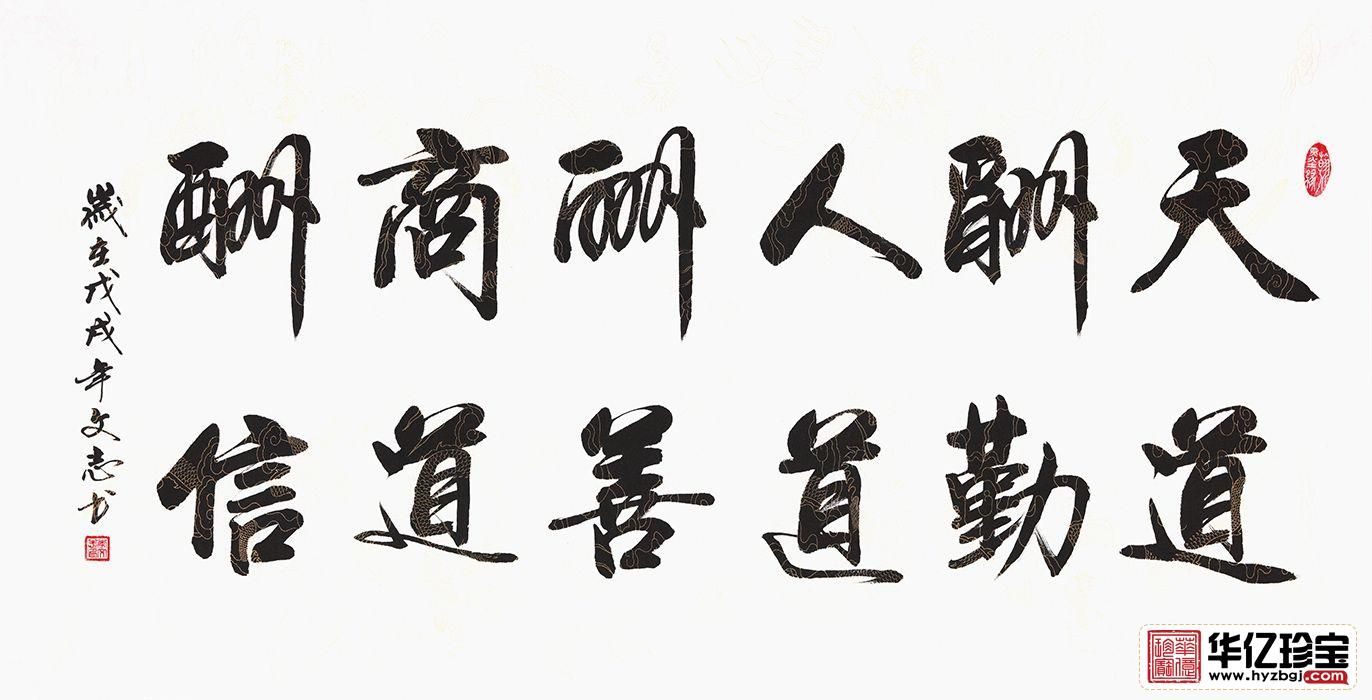 天道
酬勤
人道
酬善
商道
酬信
歲在戊戌年文志书
華億
珍寶
华亿珍宝
www.hyzbgj.com